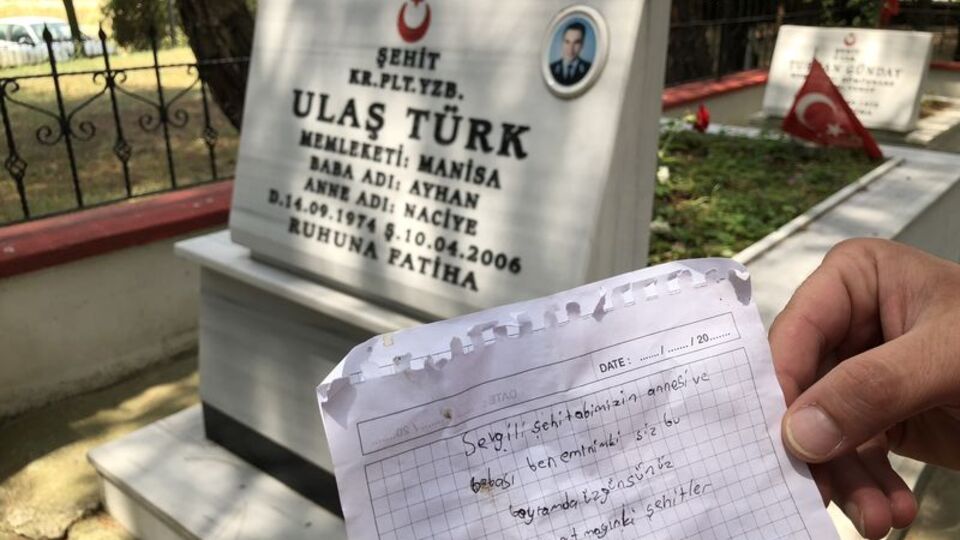 ŞEHİT
KR.PLT.YZB.
ULAŞ TÜRK
MEMLEKETİ: MANİSA
BABA ADI: AYHAN
ANNE ADI: NACİYE
D.14.09.1974 Ş.10.04.2006
RUHUNA FATİHA
ŞEHİT
GÜNDAY
DATE: ....../....../20......
Sevgili şehitabimizin annesi ve
babası ben eminimki siz bu
bayramda üzgünsünüz
şehitler